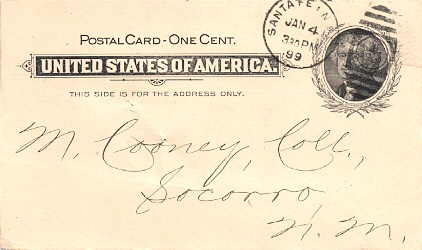 SANTA FE, N
JAN 4
330PM
99
POSTAL CARD - ONE CENT.
UNITED STATES OF AMERICA.
THIS SIDE IS FOR THE ADDRESS ONLY.
M. Cooney, Coll.,
Socorro,
N. M.